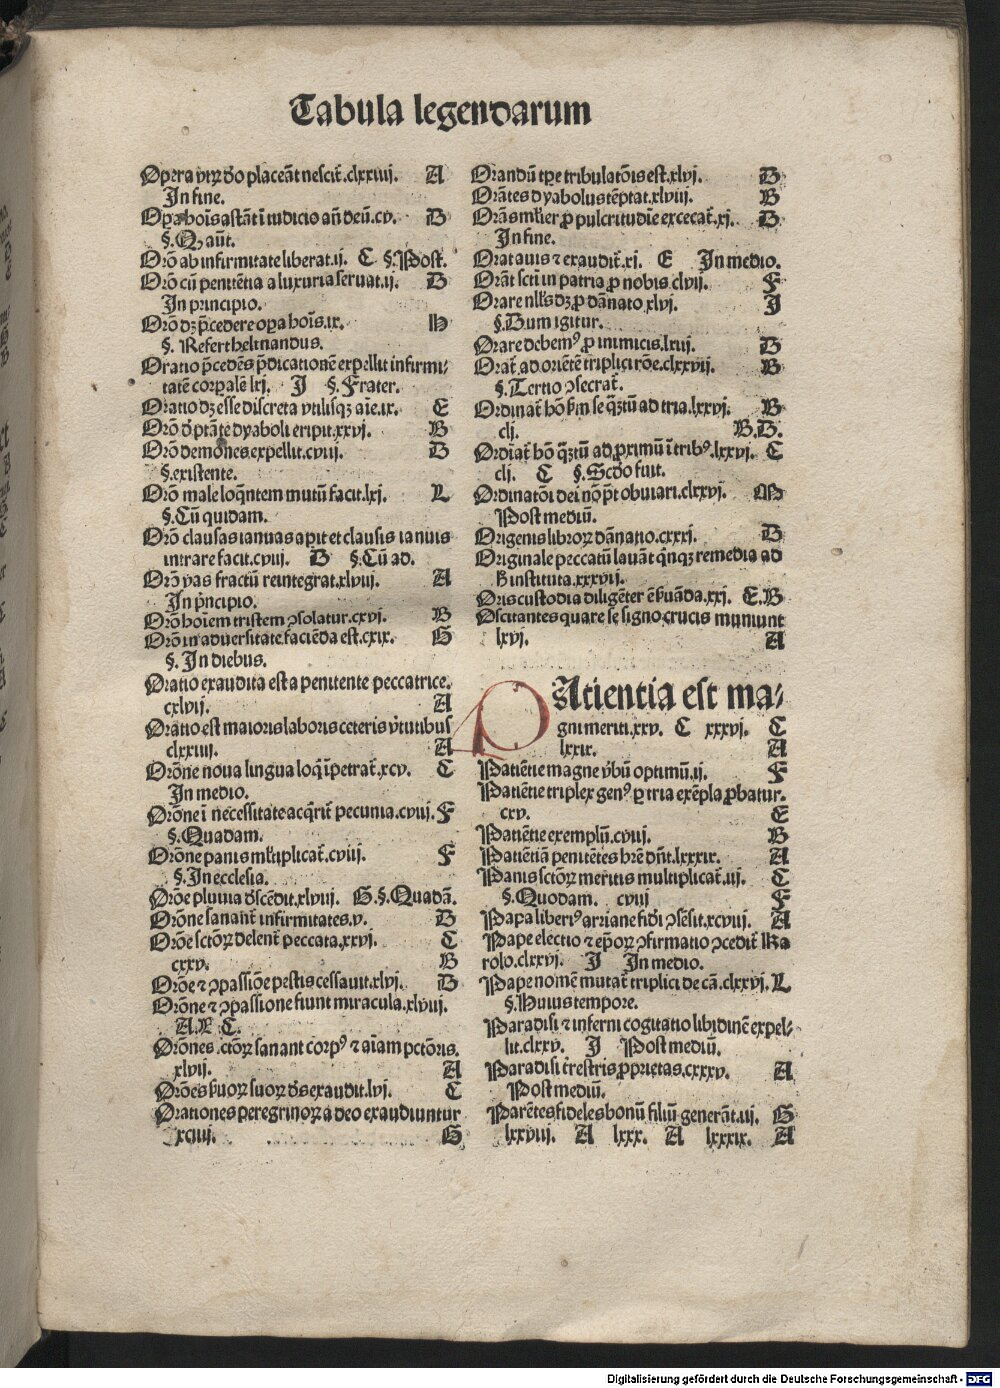 Tabula legendarum
Opera vtrū deo placeāt nescit̄.clxxiiij. A
In fine.
Opa bois astāt ī iudicio añ deū.cv. D
§. Q aūt.
Orō ab infirmitate liberat.ij. C §.Post.
Orō cū penitētia a luxuria seruat.ij. D
In principio.
Orō dꝫ p̄cedere opa bois.ix. H
§. Refert helinandus.
Oratio p̄cedēs p̄dicationē expellit infirmi⸗
tatē corpalē lxj. I §.Frater.
Oratio dꝫ esse discreta vtilisqꝫ aīe.ix. E
Orō d̄ ptāte dyaboli eripit.xxvj. B
Orō demones expellit.cviij. D
§.existente.
Orō male loqn̄tem mutū facit.lxj. L
§.Cū quidam.
Orō clausas ianuas apit et clausis ianuis
intrare facit.cviij. D §.Cū ad.
Orō vas fractū reintegrat.xlviij. A
In p̄ncipio.
Orō hoīem tristem ꝯsolatur.cxvj. B
Orō in aduersitate faciēda est.cxix. G
§. In diebus.
Oratio exaudita est a penitente peccatrice.
cxlvij. A
Oratio est maioris laboris ceteris v̄tutibus
clxxiiij. A
Orōne noua lingua loqͥ īpetrat̄.xcv. C
In medio.
Orōne ī necessitate acqͥrit̄ pecunia.cviij. F
§.Quadam.
Orōne panis ml̄tiplicat̄.cviij. F
§.In ecclesia.
Orōe pluuia d̄scēdit.xlviij. G.§.Quadā.
Orōne sanant̄ infirmitates.v. D
Orōe sctōꝝ delent̄ peccata.xxvj. C
cxxv. B
Orōe ⁊ ꝯpassiōe pestis cessauit.xlvj. D
Orōne ⁊ ꝯpassione fiunt miracula.xlviij.
A. C.
Orōnes .ctōꝝ sanant corpꝰ ⁊ aīam pctōris.
xlvij. A
Orōes suoꝝ dn̄s exaudit.lvj. C
Orationes peregrinoꝝ a deo exaudiuntur
xciiij. G
Orandū tpe tribulatōis est.xlvj. D
Orātes dyabolus tēptat.xlviij. B
Orās ml̄ier ꝓ pulcritudīe excecat̄.xj. D
In fine.
Orat auis ⁊ exaudit̄.xj. E In medio.
Orāt scti in patria ꝓ nobis.clvij. F
Orare nllꝰ dꝫ ꝓ dānato.xlvj. I
§.Dum igitur.
Orare debemꝰ ꝓ inimicis.lxiij. D
Orat̄ ad oriētē triplici rōe.clxxvij. B
§.Tertio ꝯsecrat̄.
Ordinat̄ hō s̄m se qꝫtū ad tria.lxxvj. B
clj. B.D.
Ordīat̄ hō qꝫtū ad ꝓximū ī tribꝰ.lxxvj. C
clj. C §.Scdo fuit.
Ordinatōi dei nō pt̄ obuiari.clxxvj. M
Post mediū.
Origenis libroꝝ dānatio.cxxxj. D
Originale peccatū lauāt qͥnqꝫ remedia ad
h̄ instituta.xxxvij.
Oris custodia diligēter ē s̄uāda.xxj. E.B
Oscitantes quare se signo crucis muniunt
lxvj. A
PAtientia est ma⸗
gni meriti.xxv. C xxxvj. C
lxxix. A
Patiētie magne v̄bū optimū.ij. F
Patiētie triplex genꝰ p tria exēpla ꝓbatur.
cxv. E
Patiētie exemplū.cviij. B
Patiētiā penitētes hr̄e dn̄t.lxxxix. A
Panis sctōꝝ meritis multiplicat̄.iij. C
§.Quodam. cviij F
Papa liberiꝰ arriane fidi ꝯsēsit.xcviij. A
Pape electio ⁊ ep̄oꝝ ꝯfirmatio ꝯcedit̄ Ka
rolo.clxxvj. I In medio.
Pape nomē mutat̄ triplici de cā.clxxvj. L
§.Huius tempore.
Paradisi ⁊ inferni cogitatio libidinē expel⸗
lit.clxxv. I Post mediū.
Paradisi t̄restris ꝓprietas.cxxxv. A
Post mediū.
Parētes fideles bonū filiū generāt.iij. G
lxxviij. A lxxx. A lxxxix. A
Digitalisierung gefördert durch die Deutsche Forschungsgemeinschaft - DFG